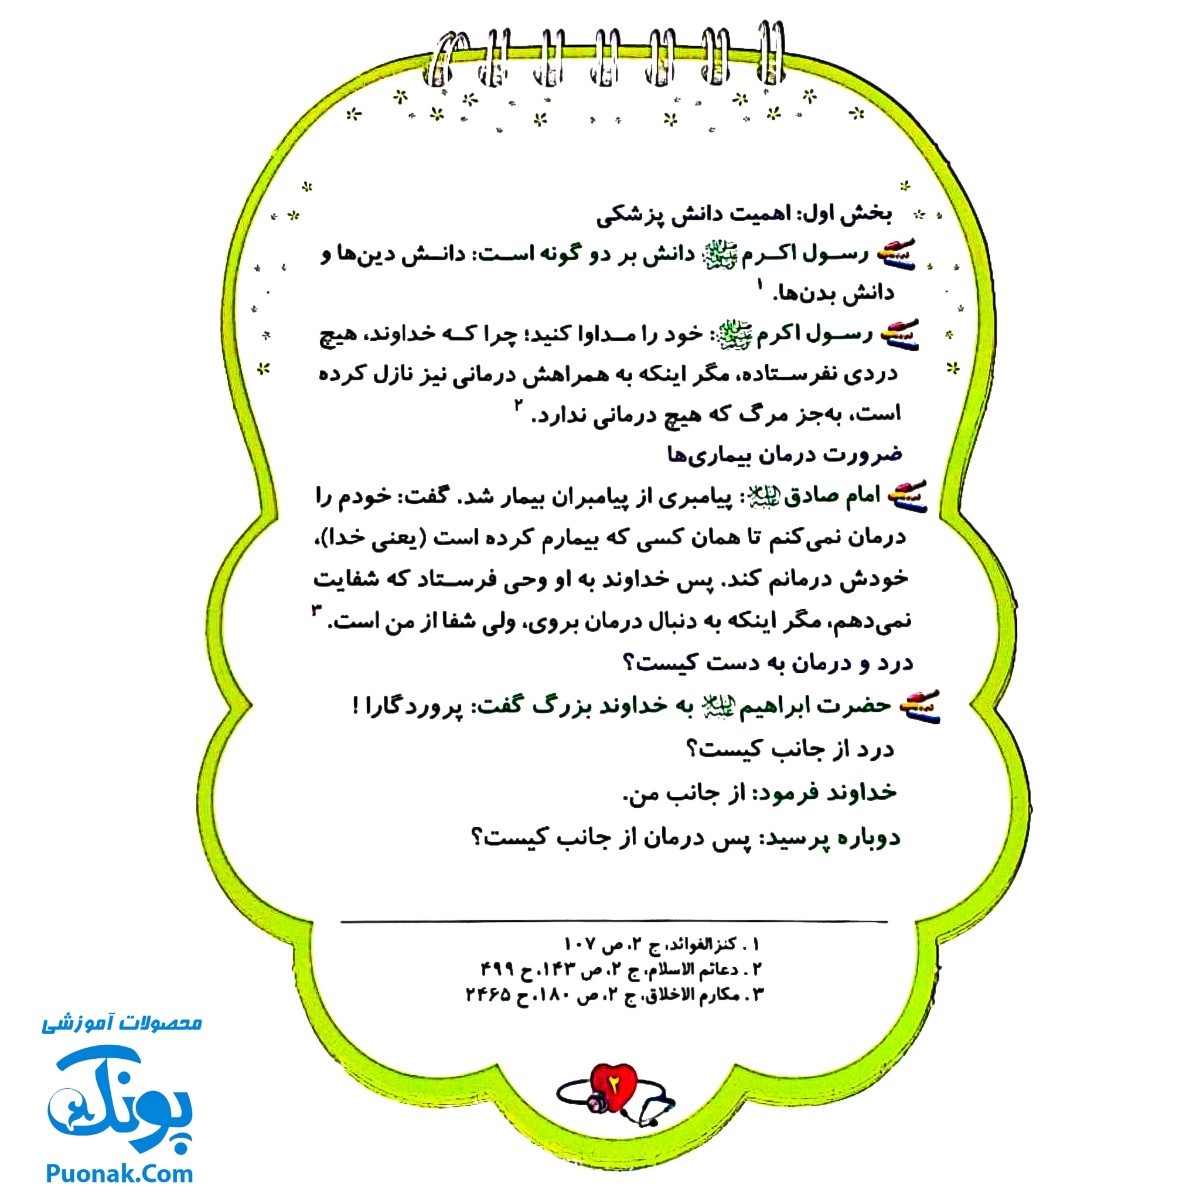 بخش اول: اهمیت دانش پزشکی
رسول اکرم ﷺ: دانش بر دو گونه است: دانش دین‌ها و
دانش بدن‌ها. ۱
رسول اکرم ﷺ: خود را مداوا کنید؛ چرا که خداوند، هیچ
دردی نفرستاده، مگر اینکه به همراهش درمانی نیز نازل کرده
است، به‌جز مرگ که هیچ درمانی ندارد. ۲
ضرورت درمان بیماری‌ها
امام صادق علیه‌السلام: پیامبری از پیامبران بیمار شد. گفت: خودم را
درمان نمی‌کنم تا همان کسی که بیمارم کرده است (یعنی خدا)،
خودش درمانم کند. پس خداوند به او وحی فرستاد که شفایت
نمی‌دهم، مگر اینکه به دنبال درمان بروی، ولی شفا از من است. ۳
درد و درمان به دست کیست؟
حضرت ابراهیم علیه‌السلام به خداوند بزرگ گفت: پروردگارا !
درد از جانب کیست؟
خداوند فرمود: از جانب من.
دوباره پرسید: پس درمان از جانب کیست؟
۱. کنزالفوائد، ج ۲، ص ۱۰۷
۲. دعائم الاسلام، ج ۲، ص ۱۴۳، ح ۴۹۹
۳. مکارم الاخلاق، ج ۲، ص ۱۸۰، ح ۲۴۶۵
۲
محصولات آموزشی
پونک
Puonak.Com